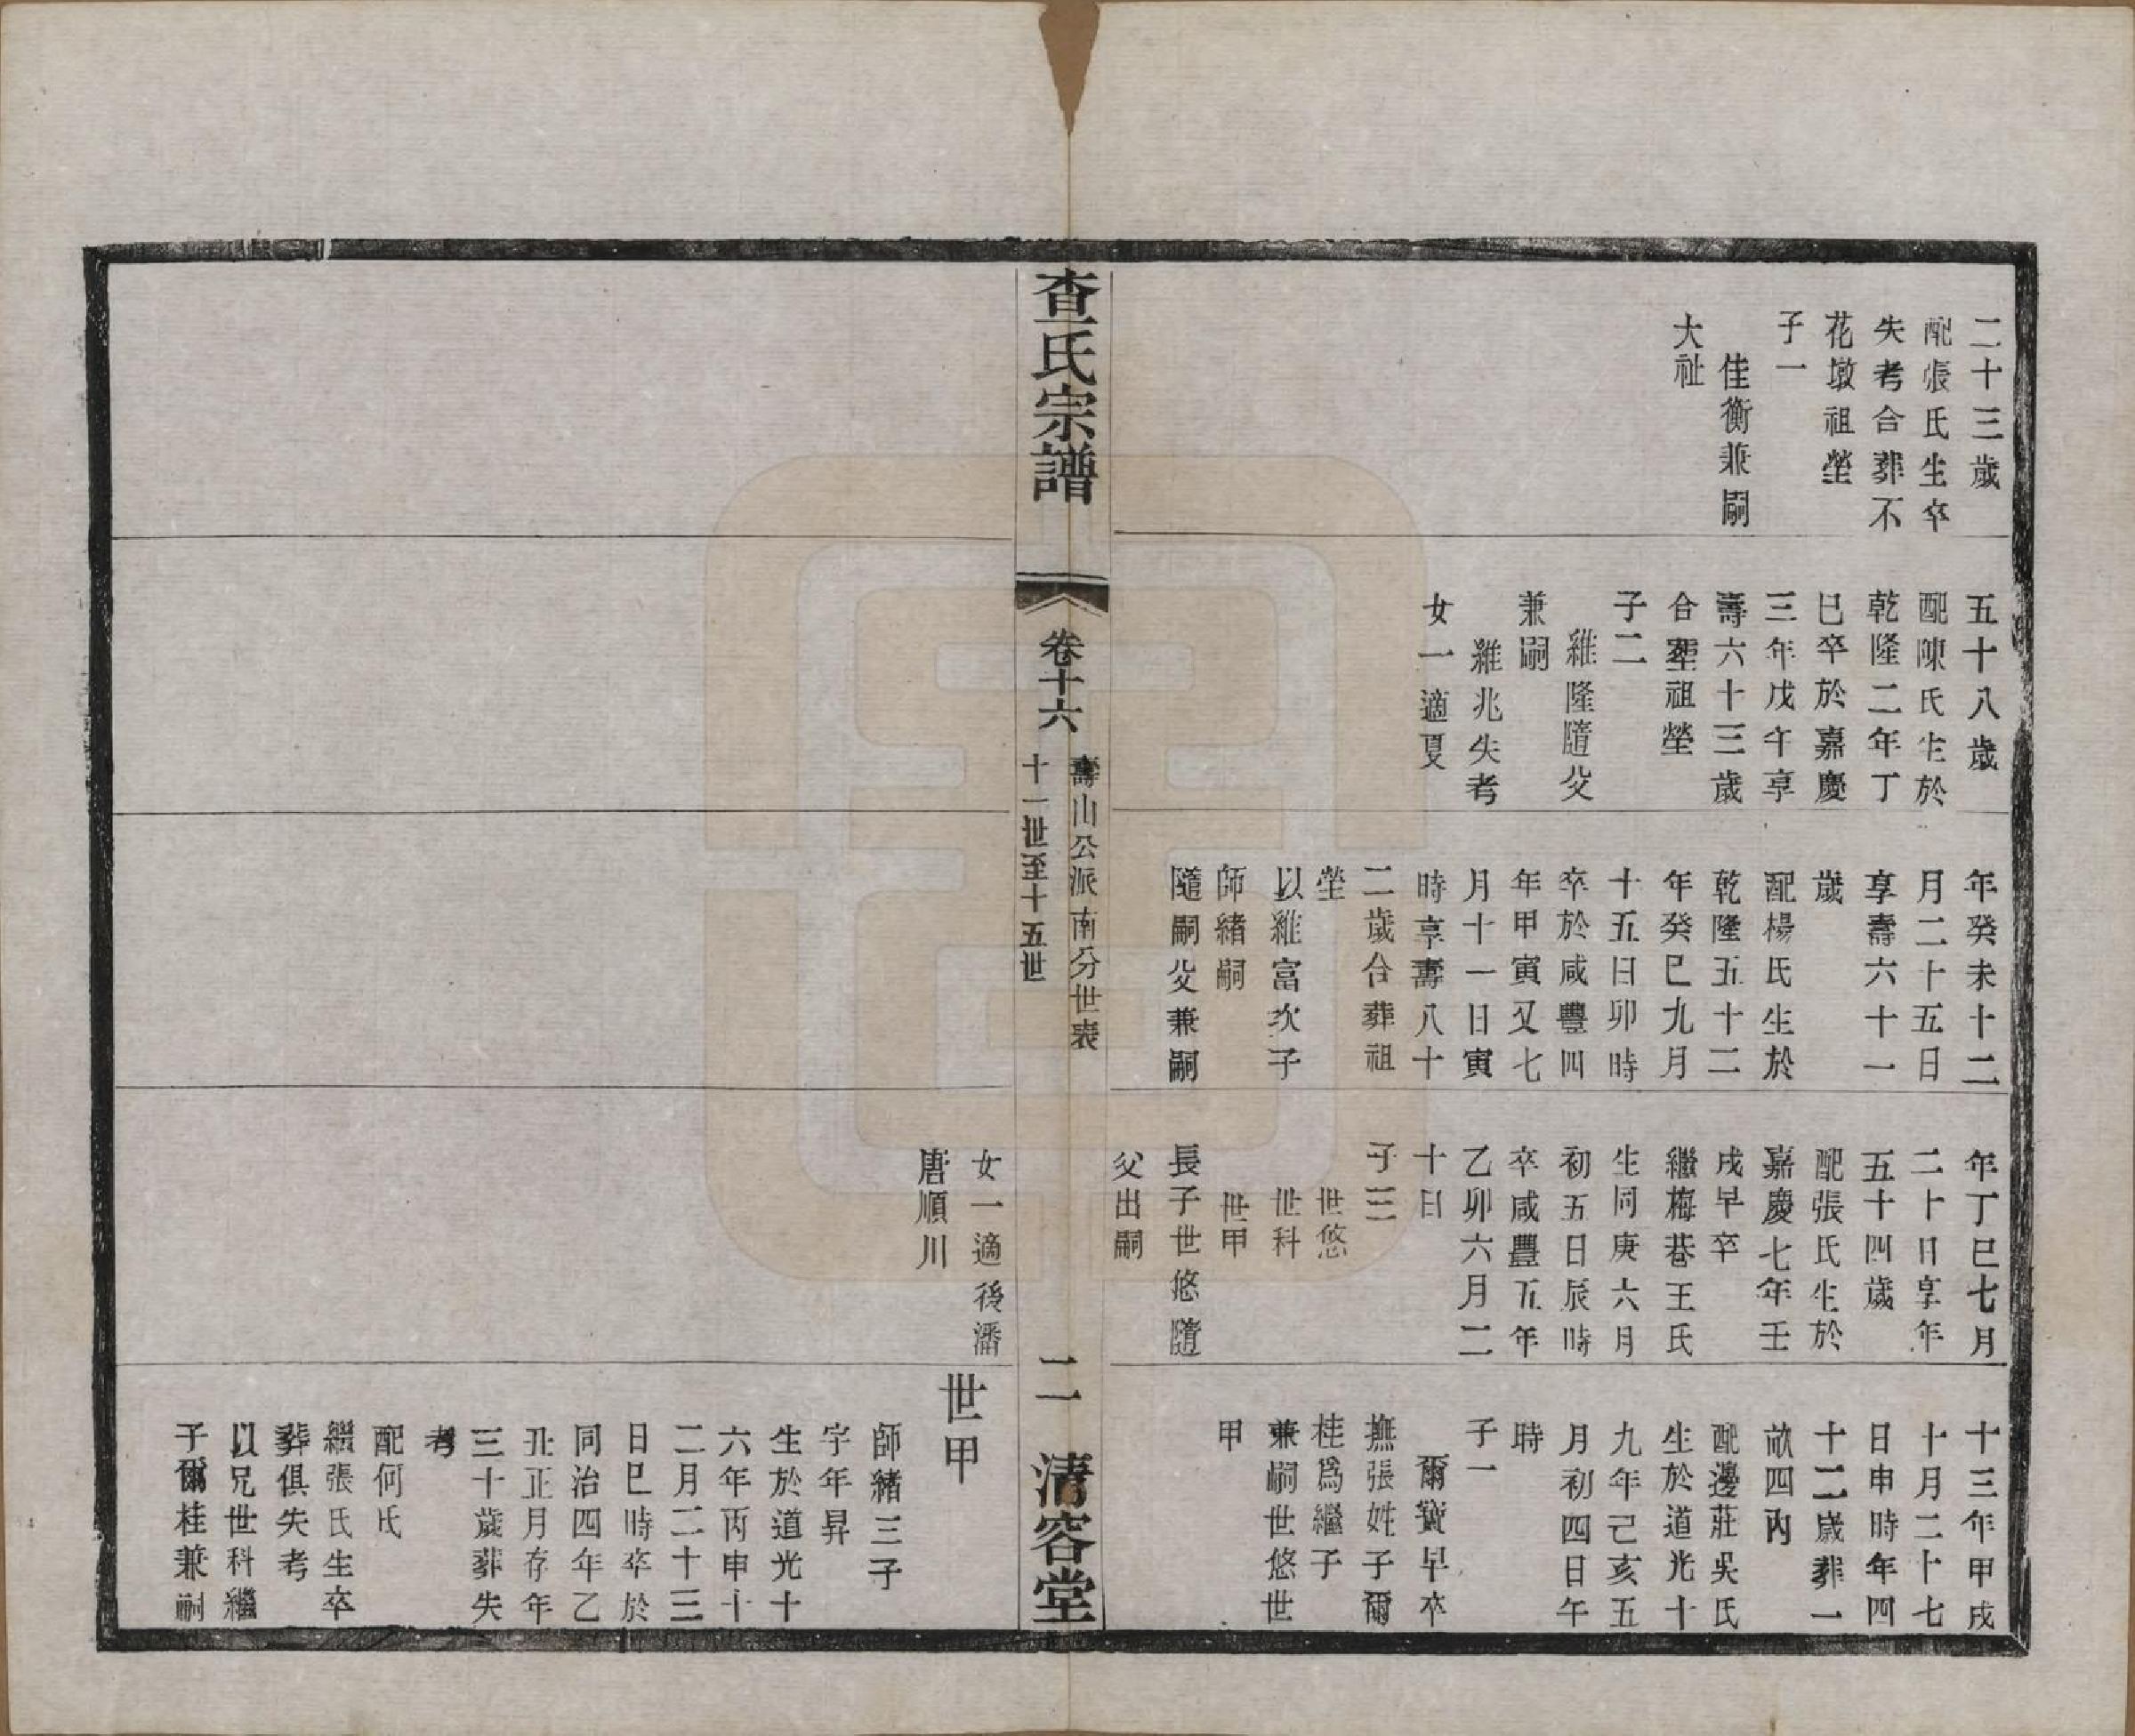 二十三歲
配張氏生卒
失考合葬不
花墩祖塋
子一
佳衡兼嗣
大祉
五十八歲
配陳氏生於
乾隆二年丁
巳卒於嘉慶
三年戊午享
壽六十三歲
合葬祖塋
子二
維隆隨父
兼嗣
維兆失考
女一適夏
年癸未十二
月二十五日
享壽六十一
歲
配楊氏生於
乾隆五十二
年癸巳九月
十五日卯時
卒於咸豐四
年甲寅又七
月十一日寅
時享壽八十
二歲合葬祖
塋
以維富次子
師緒嗣
隨嗣父兼嗣
年丁巳七月
二十日享年
五十四歲
配張氏生於
嘉慶七年壬
戌早卒
繼梅巷王氏
生同庚六月
初五日辰時
卒咸豐五年
乙卯六月二
十日
子三
世悠
世科
世甲
長子世悠隨
父出嗣
十三年甲戌
十月二十七
日申時年四
十二歲葬一
畝四內
配邊莊吳氏
生於道光十
九年己亥五
月初四日午
時
子一
爾寶早卒
撫張姓子爾
桂爲繼子
兼嗣世悠世
甲
查氏宗譜
卷十六
壽山公派南分世表
十一世至十五世
二
清容堂
女一適後潘
唐順川
世甲
師緒三子
字年昇
生於道光十
六年丙申十
二月二十三
日巳時卒於
同治四年乙
丑正月存年
三十歲葬失
考
配何氏
繼張氏生卒
葬俱失考
以兄世科繼
子爾桂兼嗣